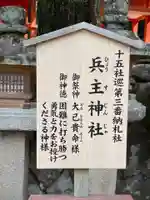 十五社巡第三番納札社
兵主神社
ひょうずじんじゃ
御祭神 大己貴命様
御神徳 困難に打ち勝つ
勇気と力をお授け
くださる神様